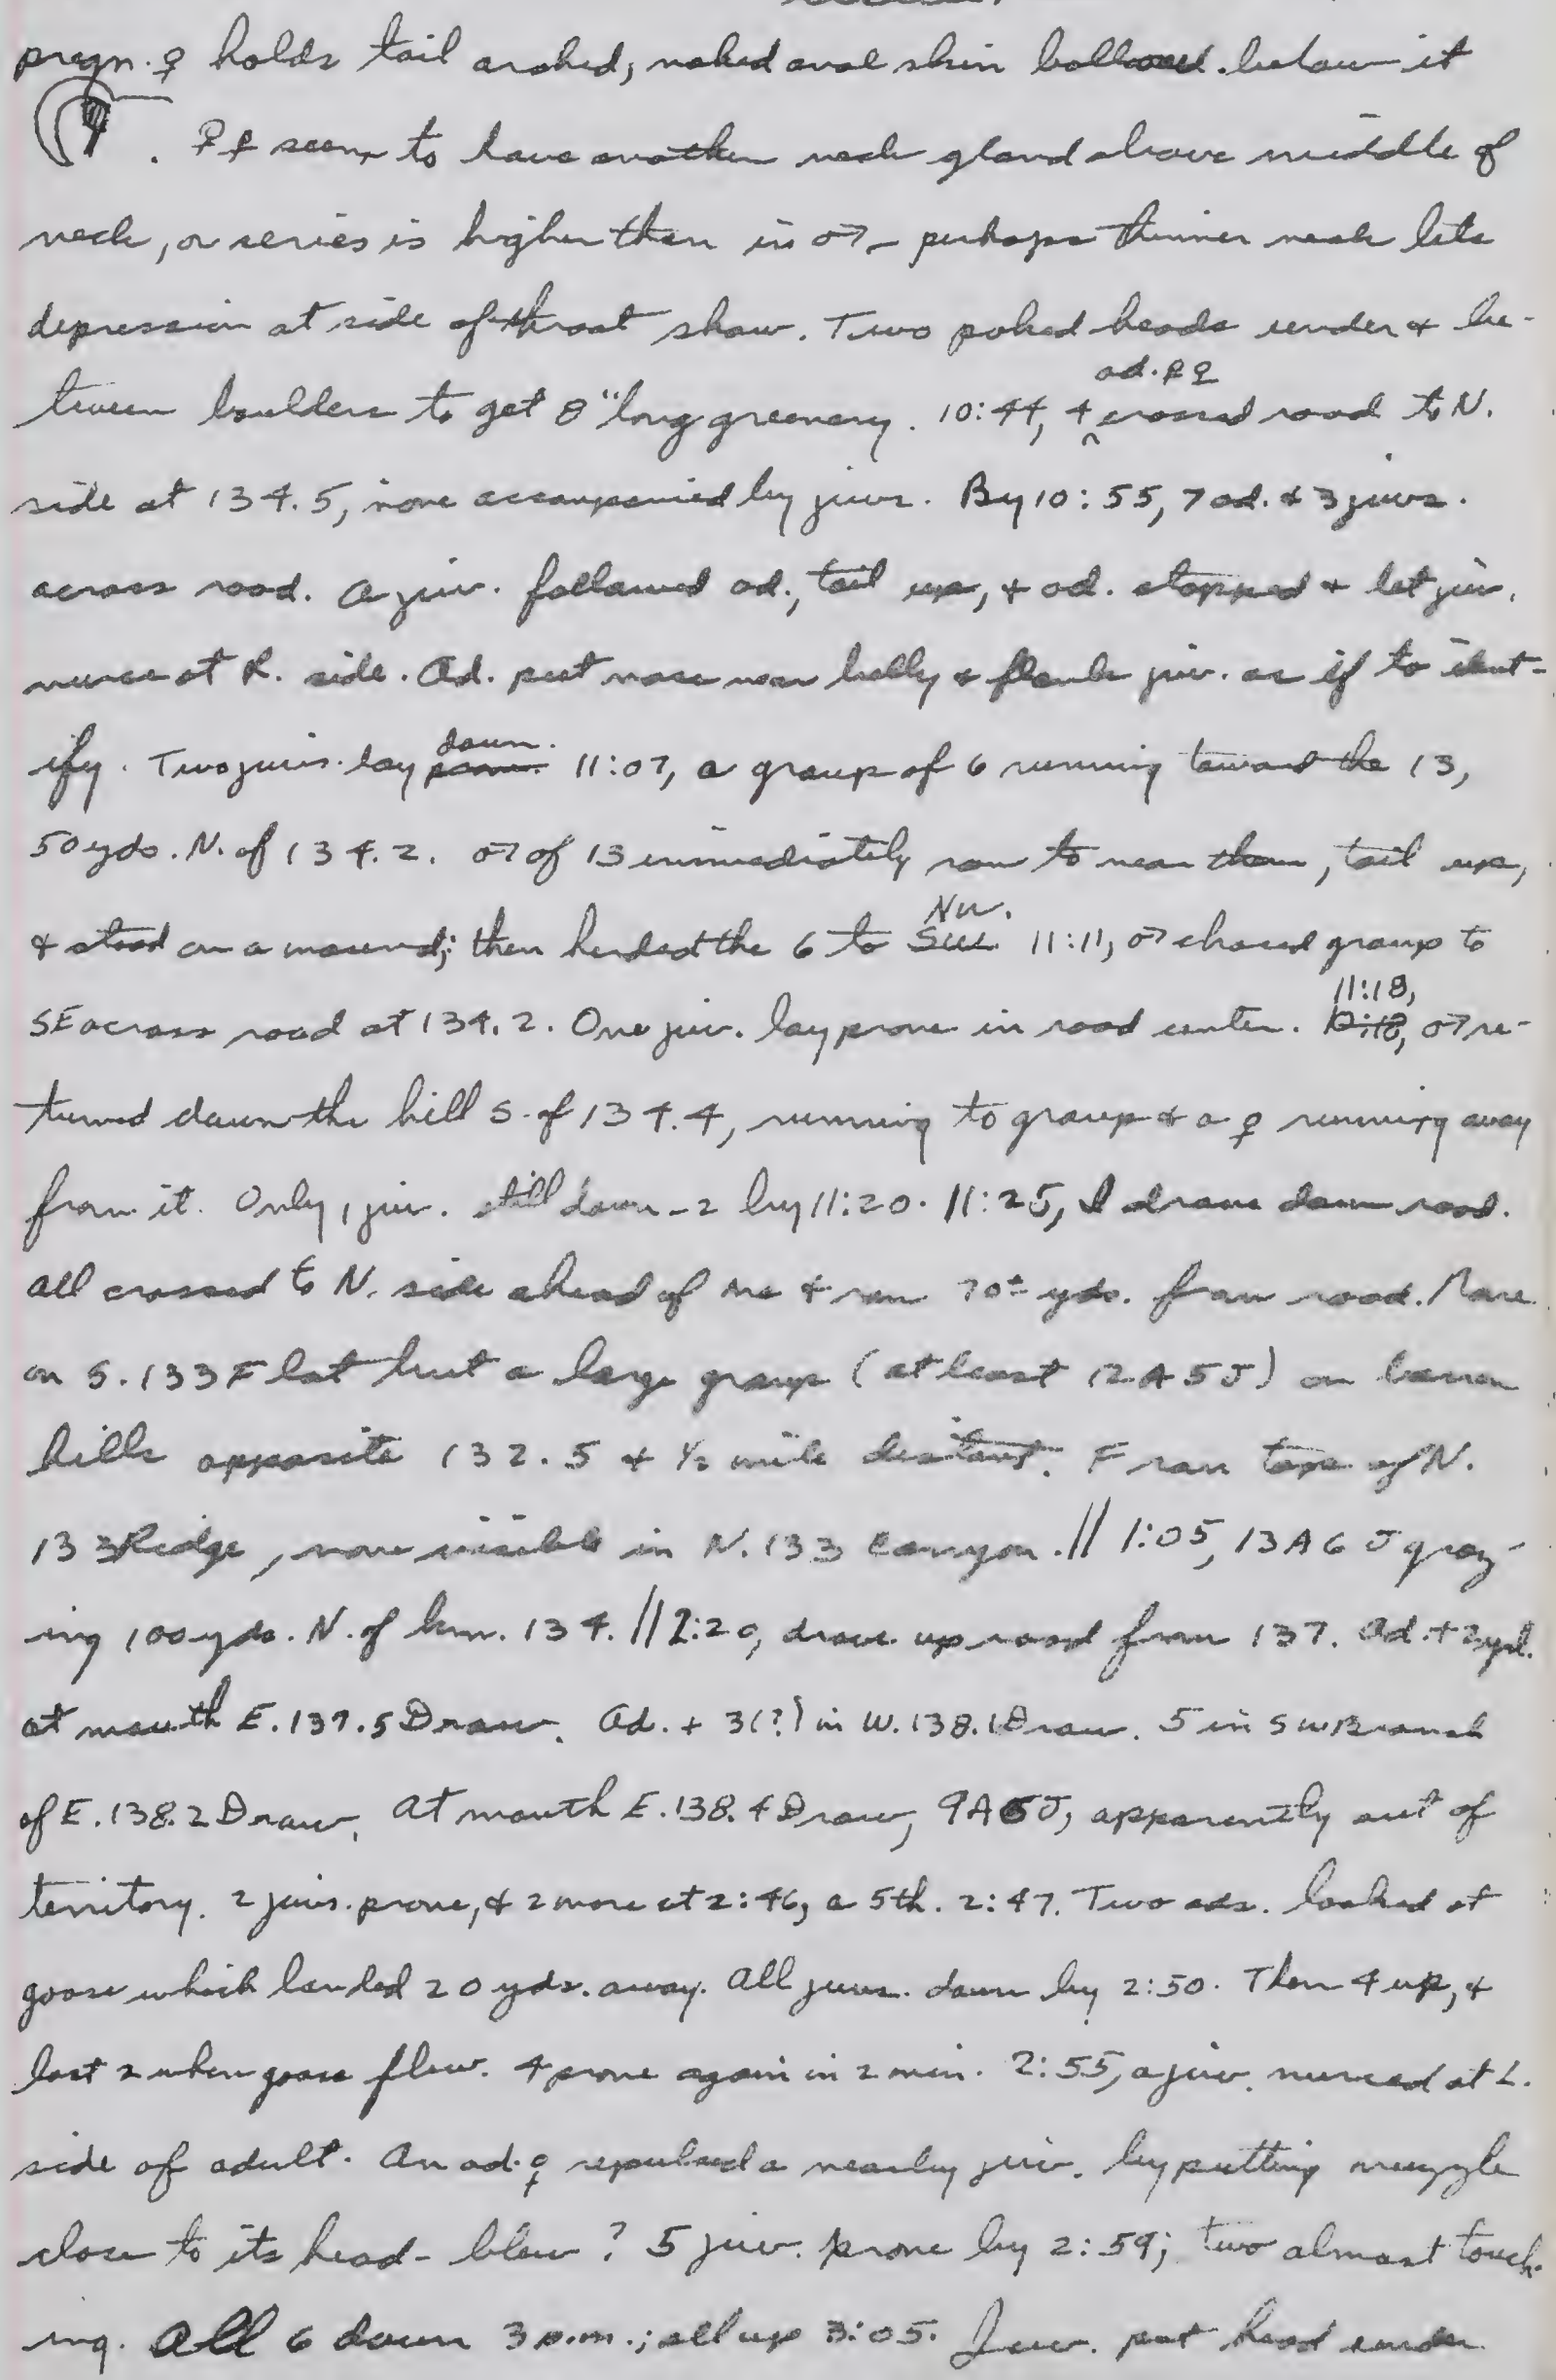 pregn. ♀ holds tail arched, naked anal skin balloons below it
. ♀♀ seem to have another neck gland above middle of
neck, or series is higher than in ♂ - perhaps thinner neck lets
depression at side of throat show. Two poked heads under & be-
tween boulders to get 8" long greenery. 10:44, 4 ad. ♀♀ crossed road to N.
side at 134.5, none accompanied by juvs. By 10:55, 7 ad. & 3 juvs.
across road. A juv. followed ad., tail up, & ad. stopped & let juv.
nurse at R. side. Ad. put nose near belly & flank juv. as if to ident-
ify. Two juvs. lay down. 11:07, a group of 6 running toward the 13,
50 yds. N. of 134.2. ♂ of 13 immediately ran to near them, tail up,
& stood on a mound; then herded the 6 to NW. 11:11, ♂ chased group to
SE across road at 134.2. One juv. lay prone in road center. 11:18, ♂ re-
turned down the hill S. of 134.4, running to group & a ♀ running away
from it. Only 1 juv. still down - 2 by 11:20. 11:25, I drove down road.
All crossed to N. side ahead of me & ran 70± yds. from road. None
on S. 133 Flat but a large group (at least 12 A 5 J) on barren
hills opposite 132.5 & ½ mile distant. From top of N.
133 Ridge, none visible in N. 133 Canyon. // 1:05, 13 A 6 J graz-
ing 100 yds. N. of km. 134. // 2:20, drove up road from 137. Ad. + 2 yrl.
at mouth E. 137.5 Draw. Ad. + 3(?) in W. 138.1 Draw. 5 in SW Branch
of E. 138.2 Draw. At mouth E. 138.4 Draw, 9A 6J, apparently out of
territory. 2 juvs. prone, & 2 more at 2:46, a 5th. 2:47. Two ads. looked at
goose which landed 20 yds. away. All juvs. down by 2:50. Then 4 up, &
last 2 when goose flew. 4 prone again in 2 min. 2:55, a juv. nursed at L.
side of adult. An ad. ♀ repulsed a nearby juv. by putting muzzle
close to its head - blew? 5 juv. prone by 2:59; two almost touch-
ing. All 6 down 3 p.m.; all up 3:05. Juv. put head under